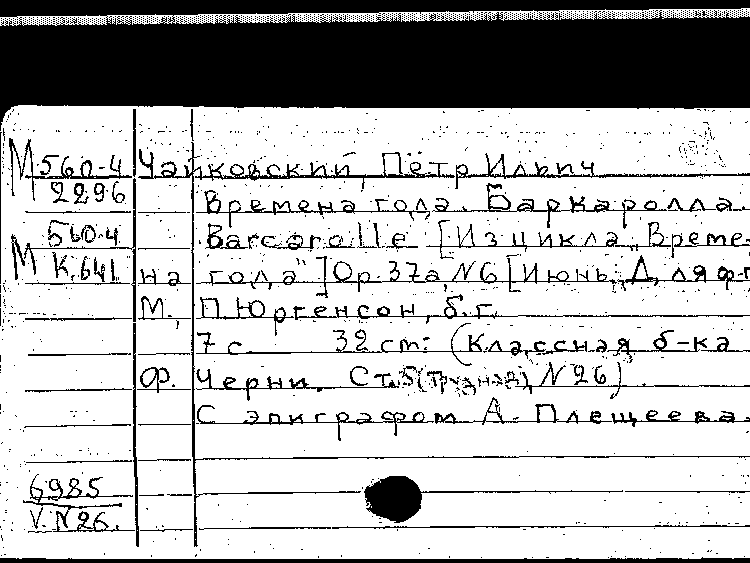 М 560-4 Чайковский, Пётр Ильич
2296 Времена года. Баркаролла.
560-4 Barcarolle [Из цикла „Време-
М К.641 на года"] Op. 37a, N6 [Июнь. Для ф-п
М., П. Юргенсон, б. г.
7 с. 32 cm: (Классная б-ка
Ф. Черни. Ст. 5 (трудная), N 26)
С эпиграфом А. Плещеева.
6985
V. N 26.